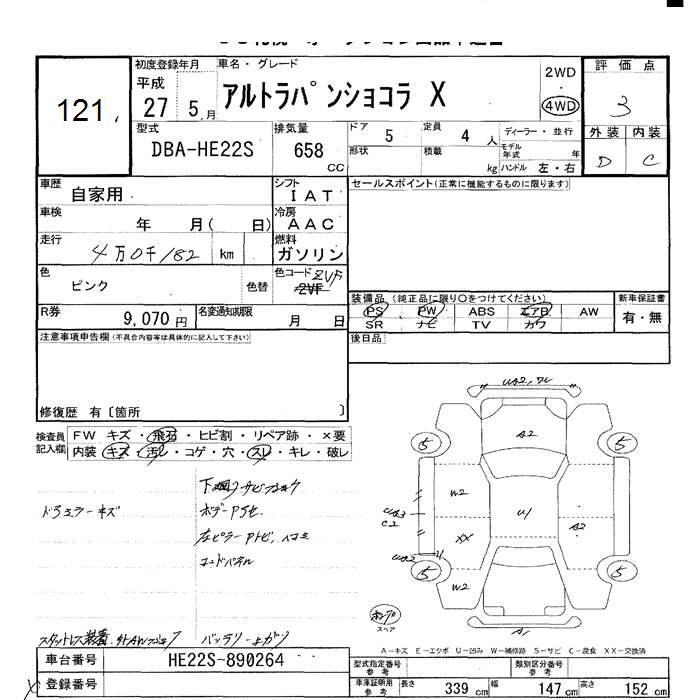 121
初度登録年月
平成
27 5 月
車名・グレード
アルトラパンショコラ X
2WD
4WD
評価点
3
型式
DBA-HE22S
排気量
658
CC
ドア
5
定員
4 人
形状
積載
kg
ディーラー・並行
モデル年式 年
ハンドル 左・右
外装 内装
D C
車歴
自家用
シフト
IAT
車検
年 月( 日)
冷房
AAC
走行
4万0千182 km
燃料
ガソリン
色
ピンク
色替
色コード ZVF
R券
9,070 円
名変通知期限
月 日
セールスポイント(正常に機能するものに限ります)
装備品 (純正品に限り○をつけてください)
PS PW ABS エアB AW
SR ナビ TV カワ
新車保証書
有・無
後日品
注意事項申告欄(不具合内容等は具体的に記入して下さい)
修復歴 有〔箇所 〕
検査員記入欄
FW キズ・飛石・ヒビ割・リペア跡・×要
内装 キズ・汚レ・コゲ・穴・スレ・キレ・破レ
ドラミラーキズ
A2
5
5
W2
U
A2
XX
W2
5
5
スペア
A1
A-キズ E-エクボ U-凹み W-補修跡 S-サビ C-腐食 XX-交換済
車台番号
HE22S-890264
登録番号
型式指定番号
参考
類別区分番号
参考
車庫証明用
参考
長さ 339 cm 幅 147 cm 高さ 152 cm